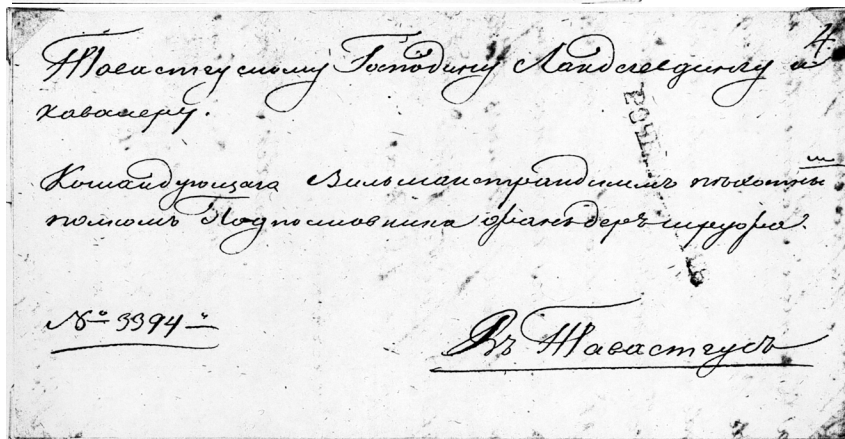 4.
Тавастгускому Господину Ландсгевдингу и
кавалеру.
Командующаго Вильманстрандскимъ пѣхотны
полкомъ Подполковника
№ 3394
Въ Тавастгусъ